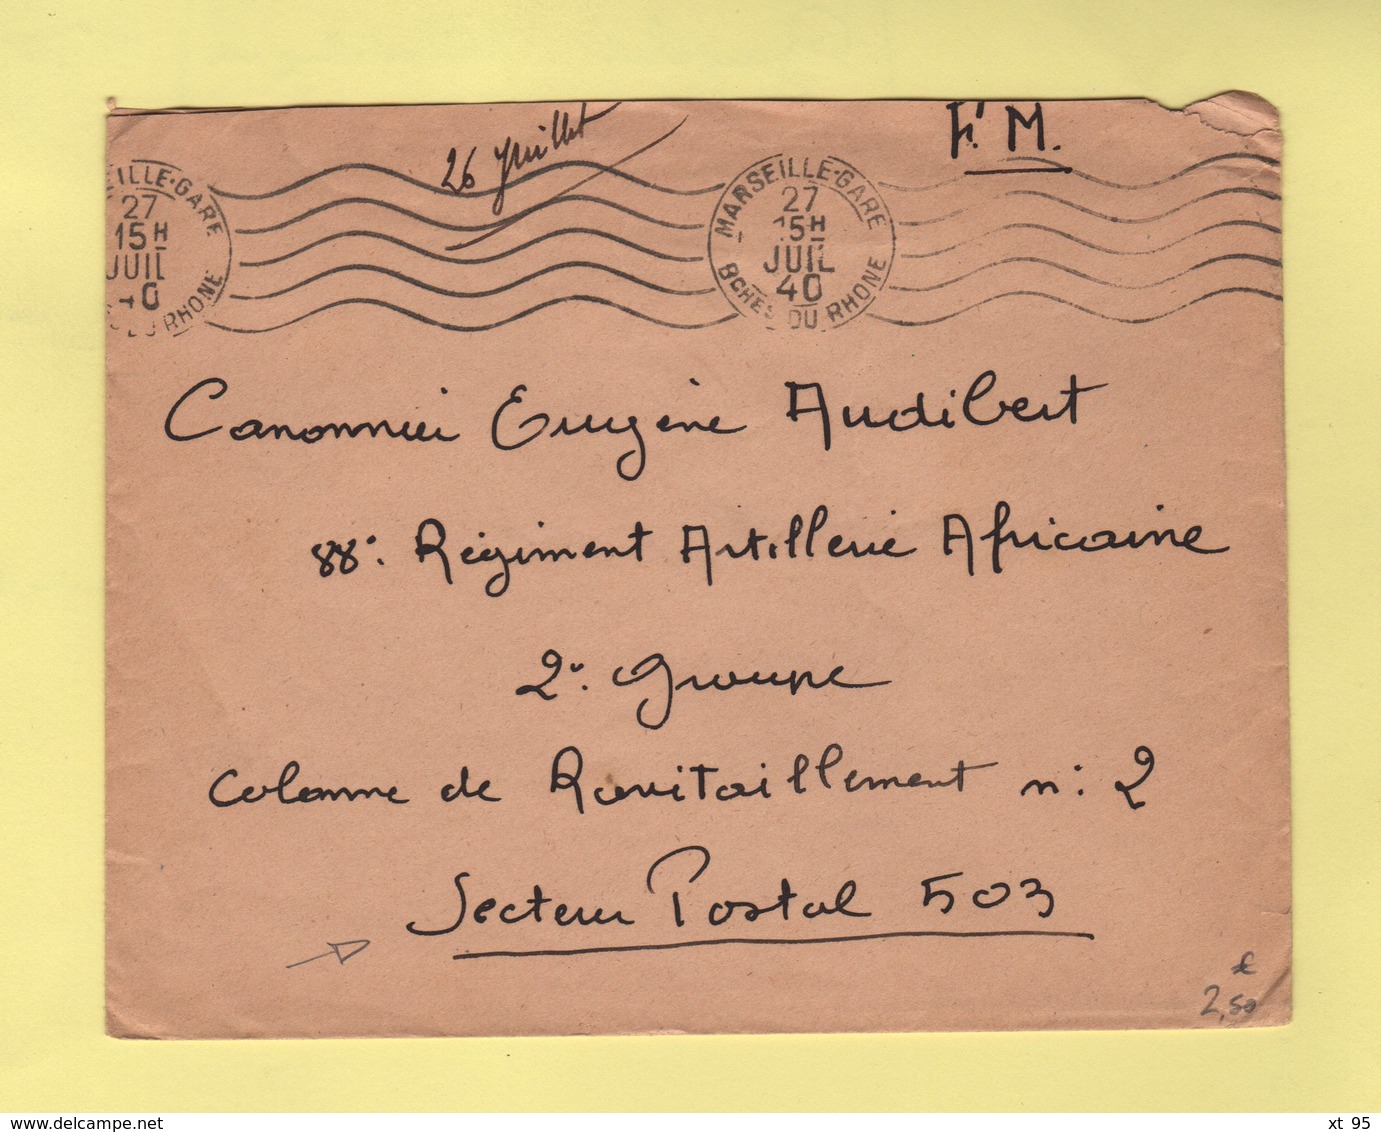 26 Juillet
F.M.
EILLE-GARE
27
15H
JUIL
40
DU RHONE
MARSEILLE-GARE
27
15H
JUIL
40
BCHES DU RHONE
Canonnier Eugène Audibert
88e. Régiment Artillerie Africaine
2e. Groupe
Colonne de Ravitaillement n: 2
Secteur Postal 503
€
2,50
www.delcampe.net
xt 95